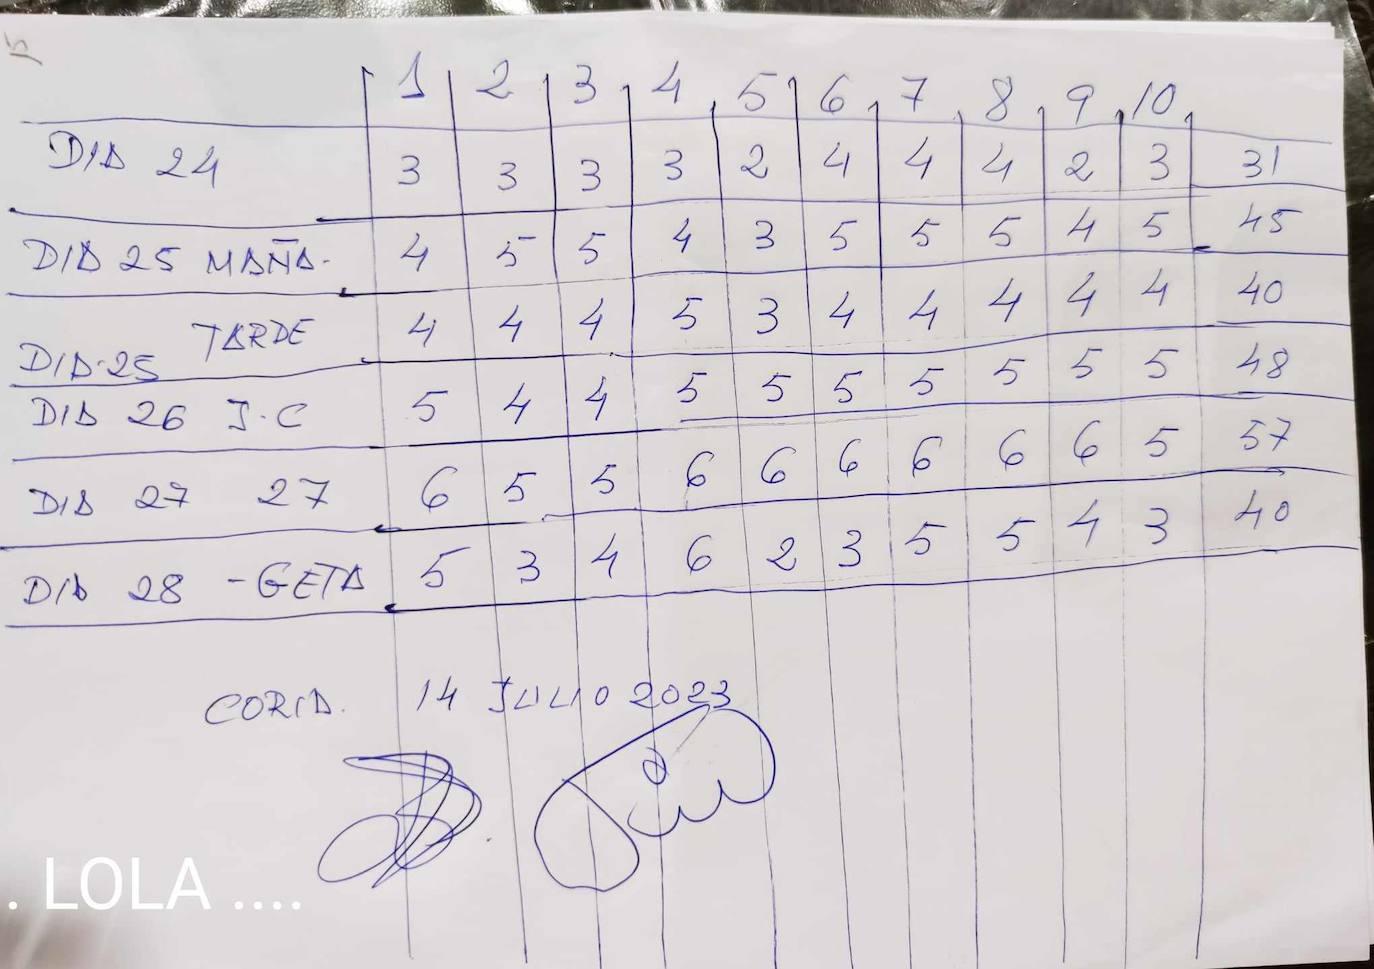 1 2 3 4 5 6 7 8 9 10
DIA 24 3 3 3 3 2 4 4 4 2 3 31
DIA 25 MAÑA. 4 5 5 4 3 5 5 5 4 5 45
DIA.25 TARDE 4 4 4 5 3 4 4 4 4 4 40
DIA 26 J.C 5 4 4 5 5 5 5 5 5 5 48
DIA 27 27 6 5 5 6 6 6 6 6 6 5 57
DIA 28 -GETA 5 3 4 6 2 3 5 5 4 3 40
CORIA. 14 JULIO 2023
. LOLA ....